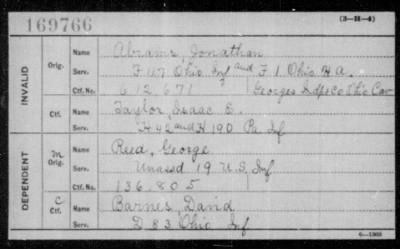 169766
(3-H-4)
Name Abrams, Jonathan
INVALID Orig. Serv. F 117 Ohio Inf and F 1 Ohio H A.
Ctf. No. 612,671 Georges Indpt Co Ohio Cav
Name Taylor, Isaac E.
Ctf. Serv. H 42 and H 190 Pa Inf
Name Reed, George
DEPENDENT m Orig. Serv. Unassd 19 U.S. Inf
Ctf. No. 136,805
C Name Barnes, David
Ctf. Serv. D 83 Ohio Inf